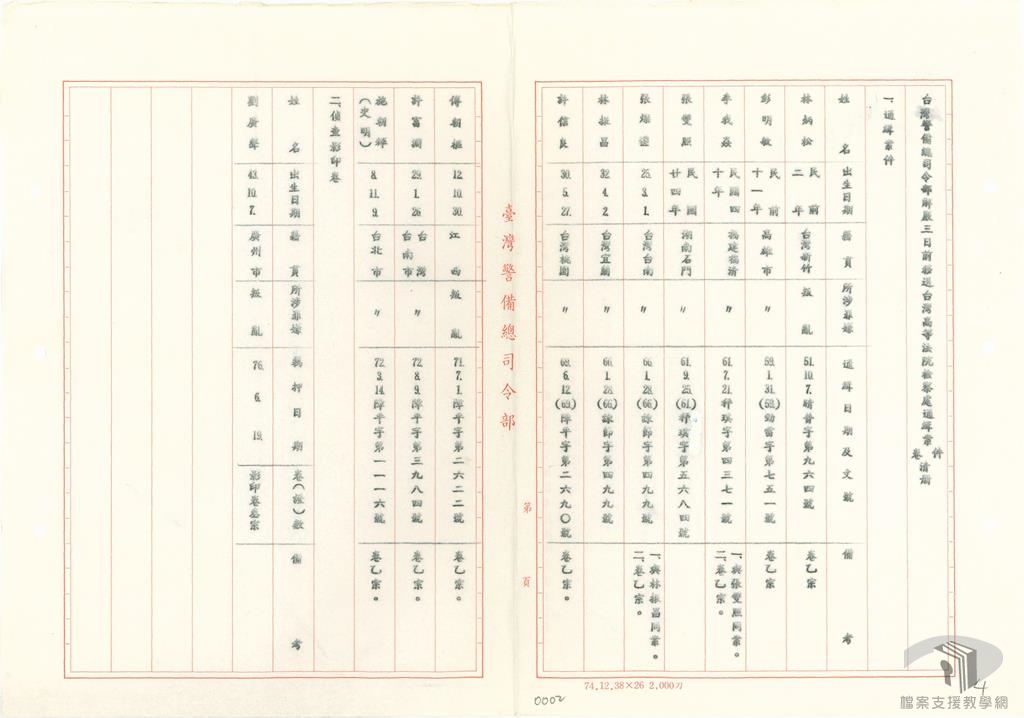 台灣警備總司令部解嚴三日前移送台灣高等法院檢察處通緝案件卷清册
一、通緝案件
姓名 出生日期 籍貫 所涉罪嫌 通緝日期及文號 備考
林炳松 民前二年 台灣新竹 叛亂 51.10.7.晴普字第九六四號 卷乙宗
彭明敏 民前十一年 高雄市 〃 59.1.31.(59)勁需字第七五一號 卷乙宗
李我焱 民國四十年 福建福清 〃 61.7.21.秤琪字第四三七一號 一、與張雙照同案。二、卷乙宗。
張雙照 民國廿四年 湖南石門 〃 61.9.25.(61)秤琪字第五六八四號
張燦鍙 25.3.1. 台灣台南 〃 66.1.28.(66)諫節字第四九九號 一、與林振昌同案。二、卷乙宗。
林振昌 32.4.2. 台灣宜蘭 〃 66.1.28.(66)諫節字第四九九號
許信良 30.5.27. 台灣桃園 〃 69.6.12.(69)障平字第二六九〇號 卷乙宗。
臺灣警備總司令部
第 頁
傅朝樞 12.10.30. 江西 叛亂 71.7.1.障平字第二六二二號 卷乙宗。
許富淵 29.1.26. 台灣台南市 〃 72.8.9.障平字第三九八四號 卷乙宗。
施朝輝(史明) 8.11.9. 台北市 〃 72.3.14.障平字第一一一六號 卷乙宗。
二、偵查影印卷
姓名 出生日期 籍貫 所涉罪嫌 羈押日期 卷(證)數 備考
劉廣聲 43.10.7. 廣州市 叛亂 76.6.19. 影印卷叁宗
74.12.38×26 2.000刀
0002
4
檔案支援教學網